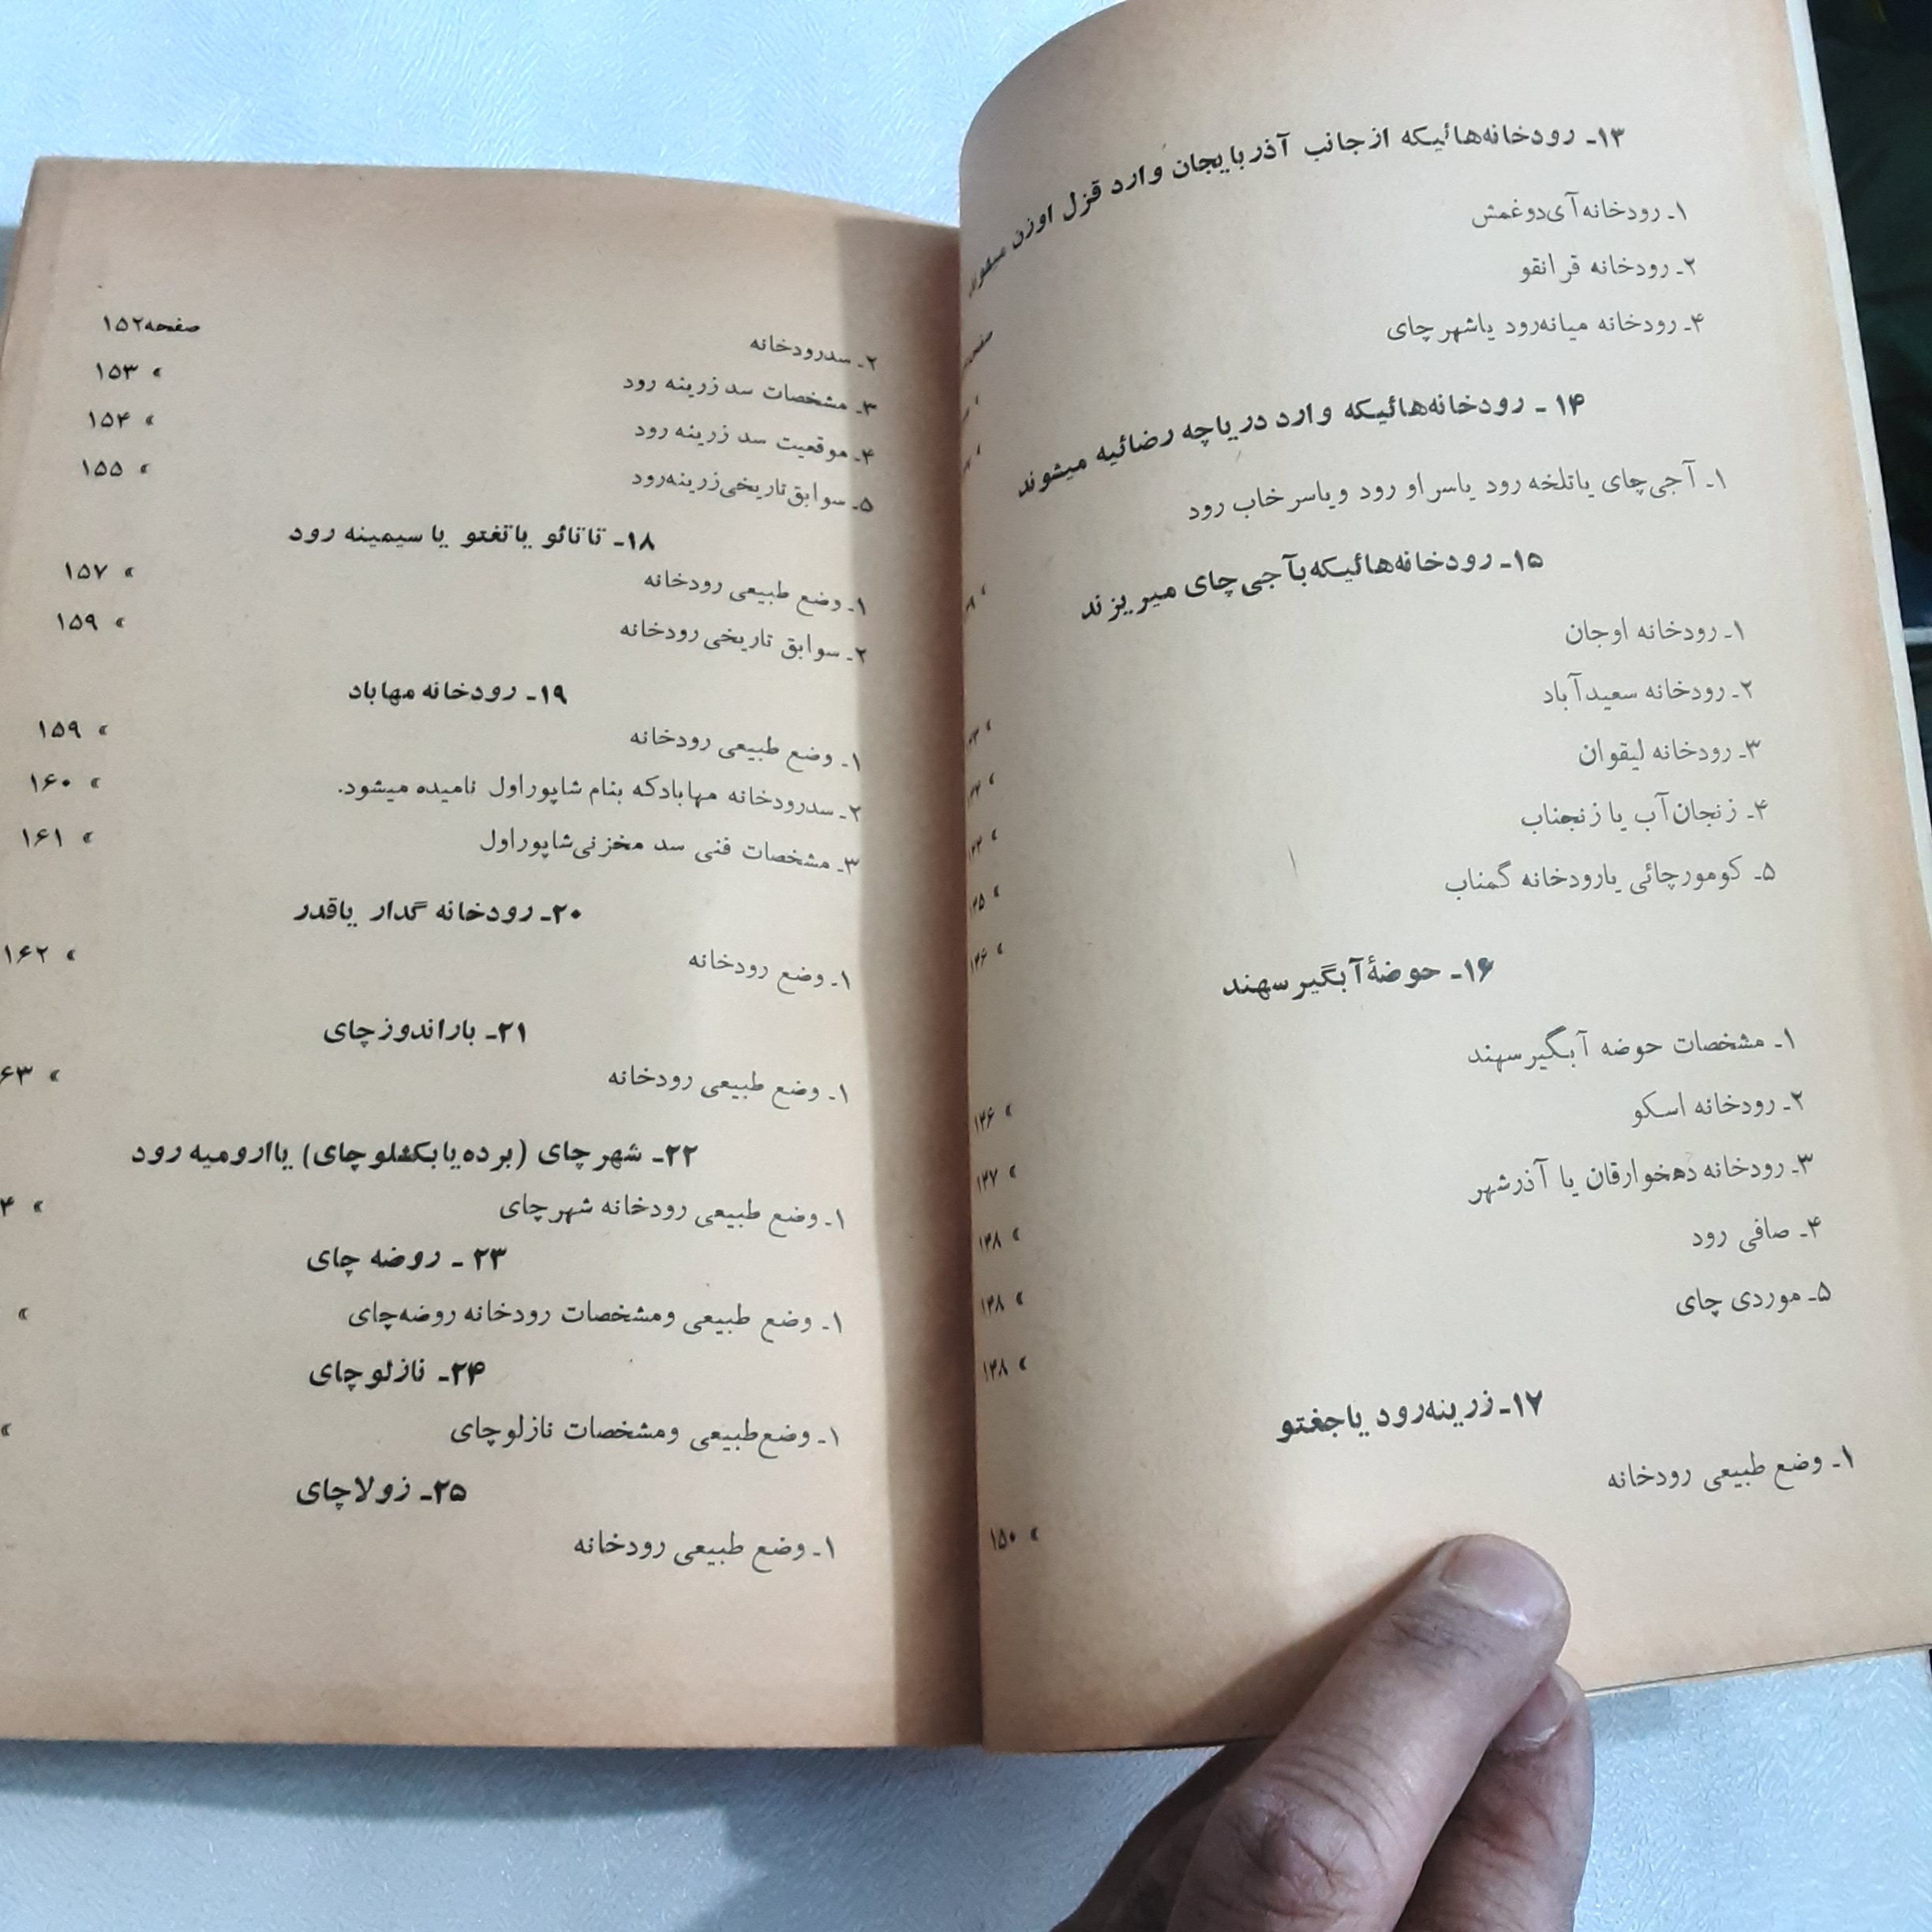 ۱۳ـ رودخانه‌هائیکه ازجانب آذربایجان وارد قزل اوزن
صفحه
۱ـ رودخانه آی‌دوغمش
۲ـ رودخانه قرانقو
۴ـ رودخانه میانه‌رود یاشهرچای
۱۴ ـ رودخانه‌هائیکه وارد دریاچه رضائیه میشوند
۱ـ آجی‌چای یاتلخه رود یاسراو رود ویاسرخاب رود
۱۵ـ رودخانه‌هائیکه بآجی‌چای میریزند
۱ـ رودخانه اوجان
۲ـ رودخانه سعیدآباد
۳ـ رودخانه لیقوان
۴ـ زنجان‌آب یا زنجناب
۵ـ کومورچائی یارودخانه گمناب
۱۶ـ حوضهٔ آبگیرسهند
۱ـ مشخصات حوضه آبگیرسهند » ۱۴۶
۲ـ رودخانه اسکو » ۱۴۷
۳ـ رودخانه دهخوارقان یا آذرشهر » ۱۴۸
۴ـ صافی رود » ۱۴۸
۵ـ موردی چای » ۱۴۸
۱۷ـ زرینه‌رود یاجغتو
۱ـ وضع طبیعی رودخانه » ۱۵۰
۲ـ سدرودخانه صفحه۱۵۲
۳ـ مشخصات سد زرینه رود » ۱۵۳
۴ـ موقعیت سد زرینه رود » ۱۵۴
۵ـ سوابق تاریخی زرینه‌رود » ۱۵۵
۱۸ـ تاتائو یاتغتو یا سیمینه رود
۱ـ وضع طبیعی رودخانه » ۱۵۷
۲ـ سوابق تاریخی رودخانه » ۱۵۹
۱۹ـ رودخانه مهاباد
۱ـ وضع طبیعی رودخانه » ۱۵۹
۲ـ سدرودخانه مهابادکه بنام شاپوراول نامیده میشود. » ۱۶۰
۳ـ مشخصات فنی سد مخزنی شاپوراول » ۱۶۱
۲۰ـ رودخانه گدار یاقدر
۱ـ وضع رودخانه » ۱۶۲
۲۱ـ باراندوزچای
۱ـ وضع طبیعی رودخانه » ۶۳
۲۲ـ شهرچای (برده‌یابکشلوچای) یاارومیه رود
۱ـ وضع طبیعی رودخانه شهرچای » ۴
۲۳ ـ روضه چای
۱ـ وضع طبیعی ومشخصات رودخانه روضه‌چای »
۲۴ـ نازلوچای
۱ـ وضع طبیعی ومشخصات نازلوچای »
۲۵ـ زولاچای
۱ـ وضع طبیعی رودخانه